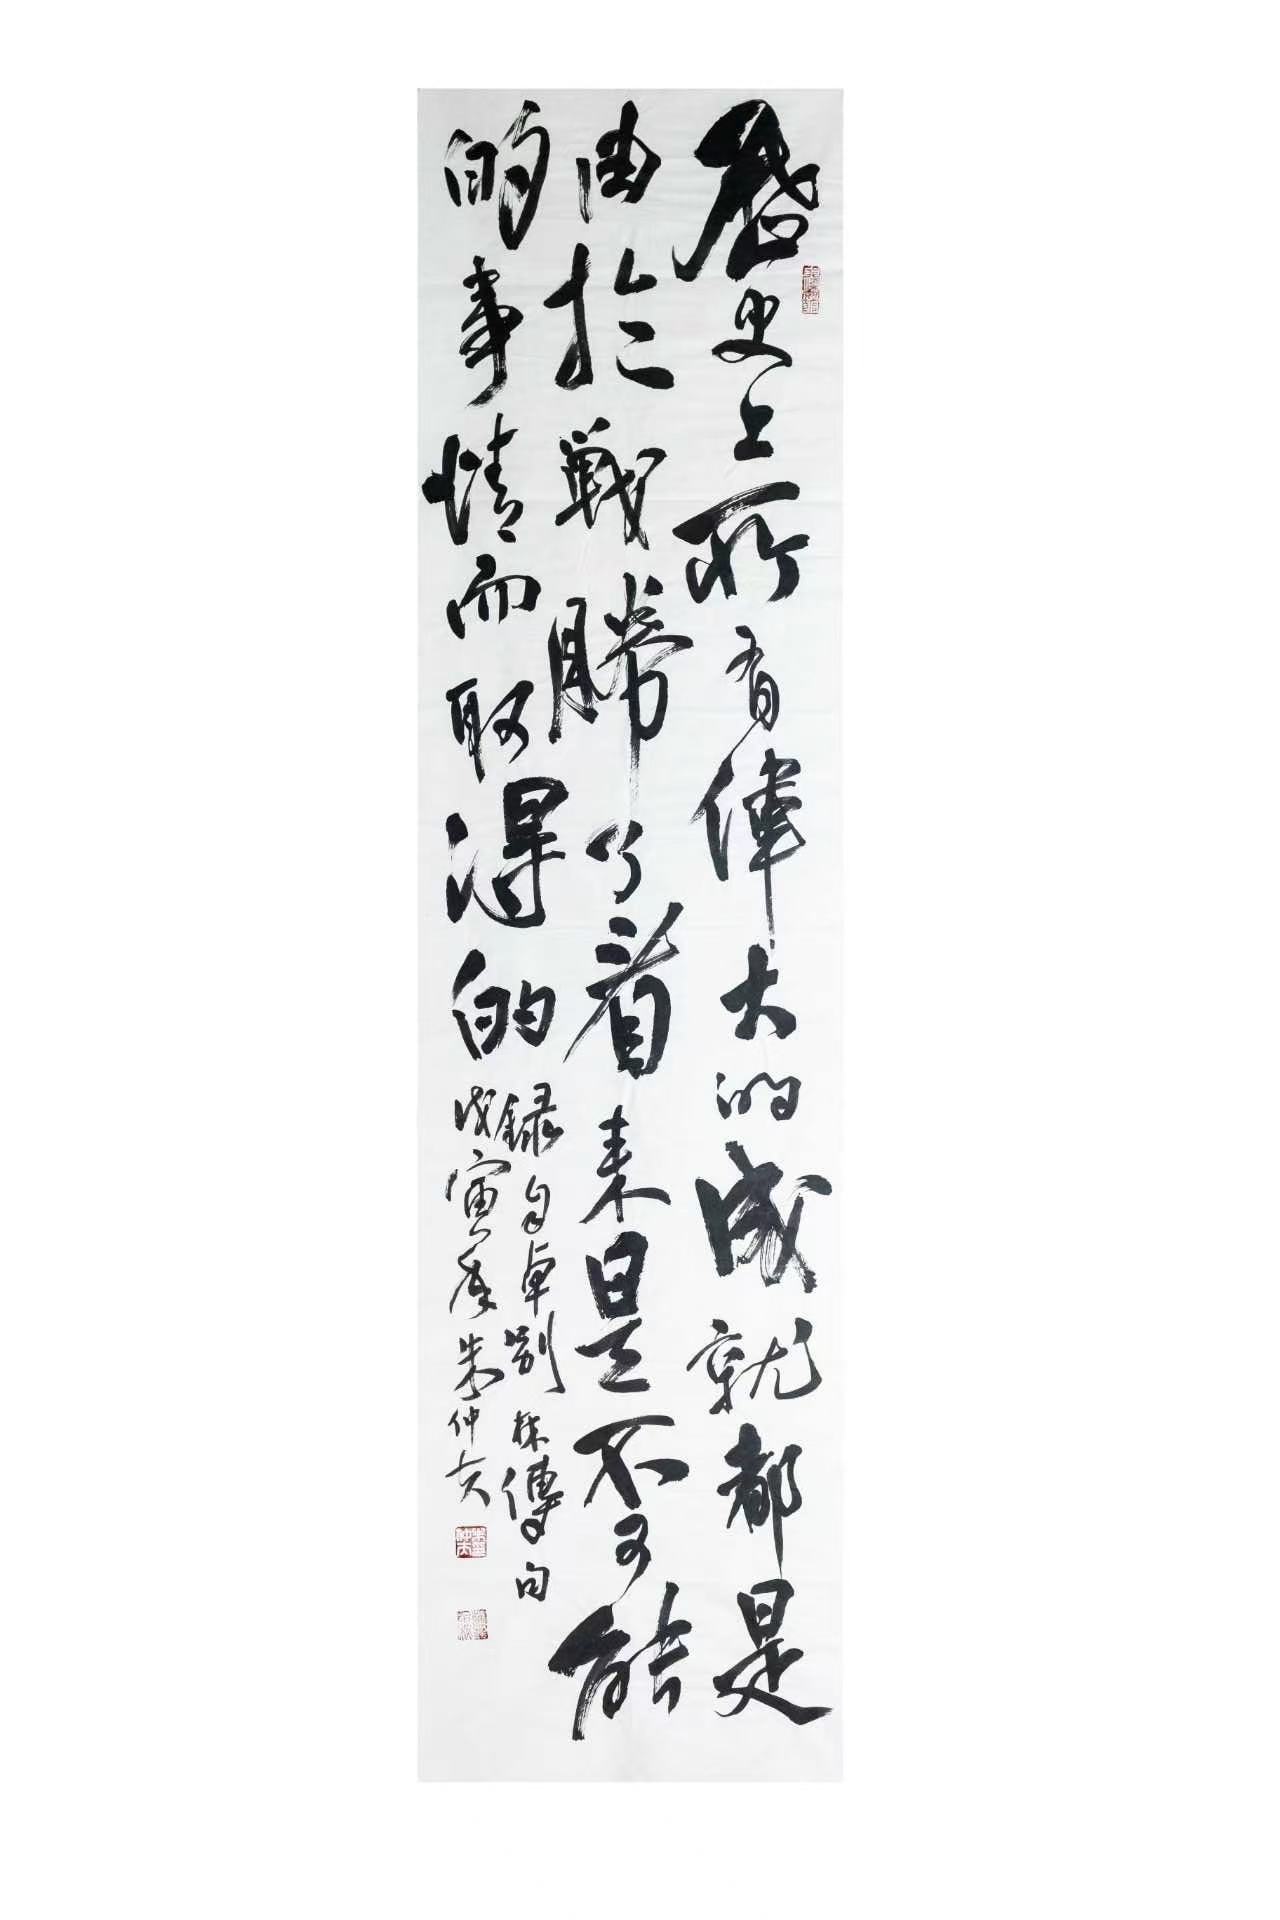 歷史上所有偉大的成就都是
由於戰勝了看來是不可能
的事情而取得的
錄自卓別林傳句
戊寅年朱仲夫